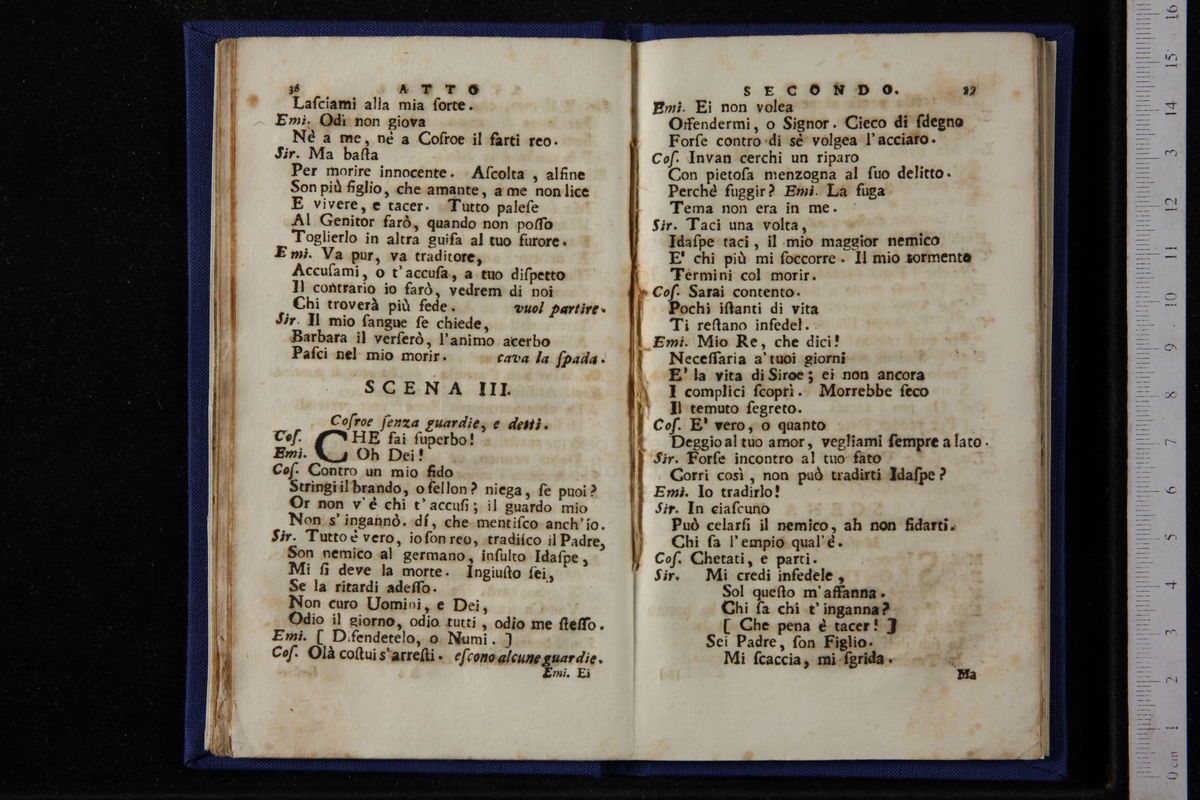 36 ATTO
Lasciami alla mia sorte.
Emi. Odi non giova
Nè a me, nè a Cosroe il farti reo.
Sir. Ma basta
Per morire innocente. Ascolta, alfine
Son più figlio, che amante, a me non lice
E vivere, e tacer. Tutto palese
Al Genitor farò, quando non posso
Toglierlo in altra guisa al tuo furore.
Emi. Va pur, va traditore,
Accusami, o t'accusa, a tuo dispetto
Il contrario io farò, vedrem di noi
Chi troverà più fede. vuol partire.
Sir. Il mio sangue se chiede,
Barbara il verserò, l'animo acerbo
Pasci nel mio morir. cava la spada.
SCENA III.
Cosroe senza guardie, e detti.
Cos. CHE fai superbo!
Emi. Oh Dei!
Cos. Contro un mio fido
Stringi il brando, o fellon? niega, se puoi?
Or non v'é chi t'accusi; il guardo mio
Non s'ingannò. dí, che mentisco anch'io.
Sir. Tutto è vero, io son reo, tradisco il Padre,
Son nemico al germano, insulto Idaspe,
Mi si deve la morte. Ingiusto sei,
Se la ritardi adesso.
Non curo Uomini, e Dei,
Odio il giorno, odio tutti, odio me stesso.
Emi. [ D.fendetelo, o Numi. ]
Cos. Olà costui s'arresti. escono alcune guardie.
Emi. Ei
SECONDO. 37
Emi. Ei non volea
Offendermi, o Signor. Cieco di sdegno
Forse contro di sè volgea l'acciaro.
Cos. Invan cerchi un riparo
Con pietosa menzogna al suo delitto.
Perchè fuggir? Emi. La fuga
Tema non era in me.
Sir. Taci una volta,
Idaspe taci, il mio maggior nemico
E' chi più mi soccorre. Il mio tormento
Termini col morir.
Cos. Sarai contento.
Pochi istanti di vita
Ti restano infedel.
Emi. Mio Re, che dici!
Necessaria a'tuoi giorni
E' la vita di Siroe; ei non ancora
I complici scoprì. Morrebbe seco
Il temuto segreto.
Cos. E' vero, o quanto
Deggio al tuo amor, vegliami sempre a lato.
Sir. Forse incontro al tuo fato
Corri così, non può tradirti Idaspe?
Emi. Io tradirlo!
Sir. In ciascuno
Può celarsi il nemico, ah non fidarti.
Chi sa l'empio qual'è.
Cos. Chetati, e parti.
Sir. Mi credi infedele,
Sol questo m'affanna.
Chi sa chi t'inganna?
[ Che pena è tacer! ]
Sei Padre, son Figlio.
Mi scaccia, mi sgrida.
Ma
16
15
14
3
12
11
10
9
8
7
6
5
4
3
2
1
0 cm